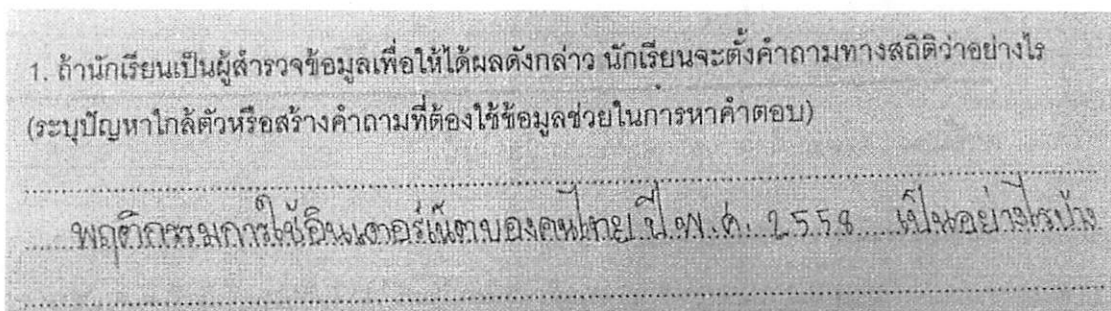 1. ถ้านักเรียนเป็นผู้สำรวจข้อมูลเพื่อให้ได้ผลดังกล่าว นักเรียนจะตั้งคำถามทางสถิติว่าอย่างไร
(ระบุปัญหาใกล้ตัวหรือสร้างคำถามที่ต้องใช้ข้อมูลช่วยในการหาคำตอบ)
พฤติกรรมการใช้อินเตอร์เน็ตของคนไทย ปี พ.ศ. 2558 เป็นอย่างไรบ้าง